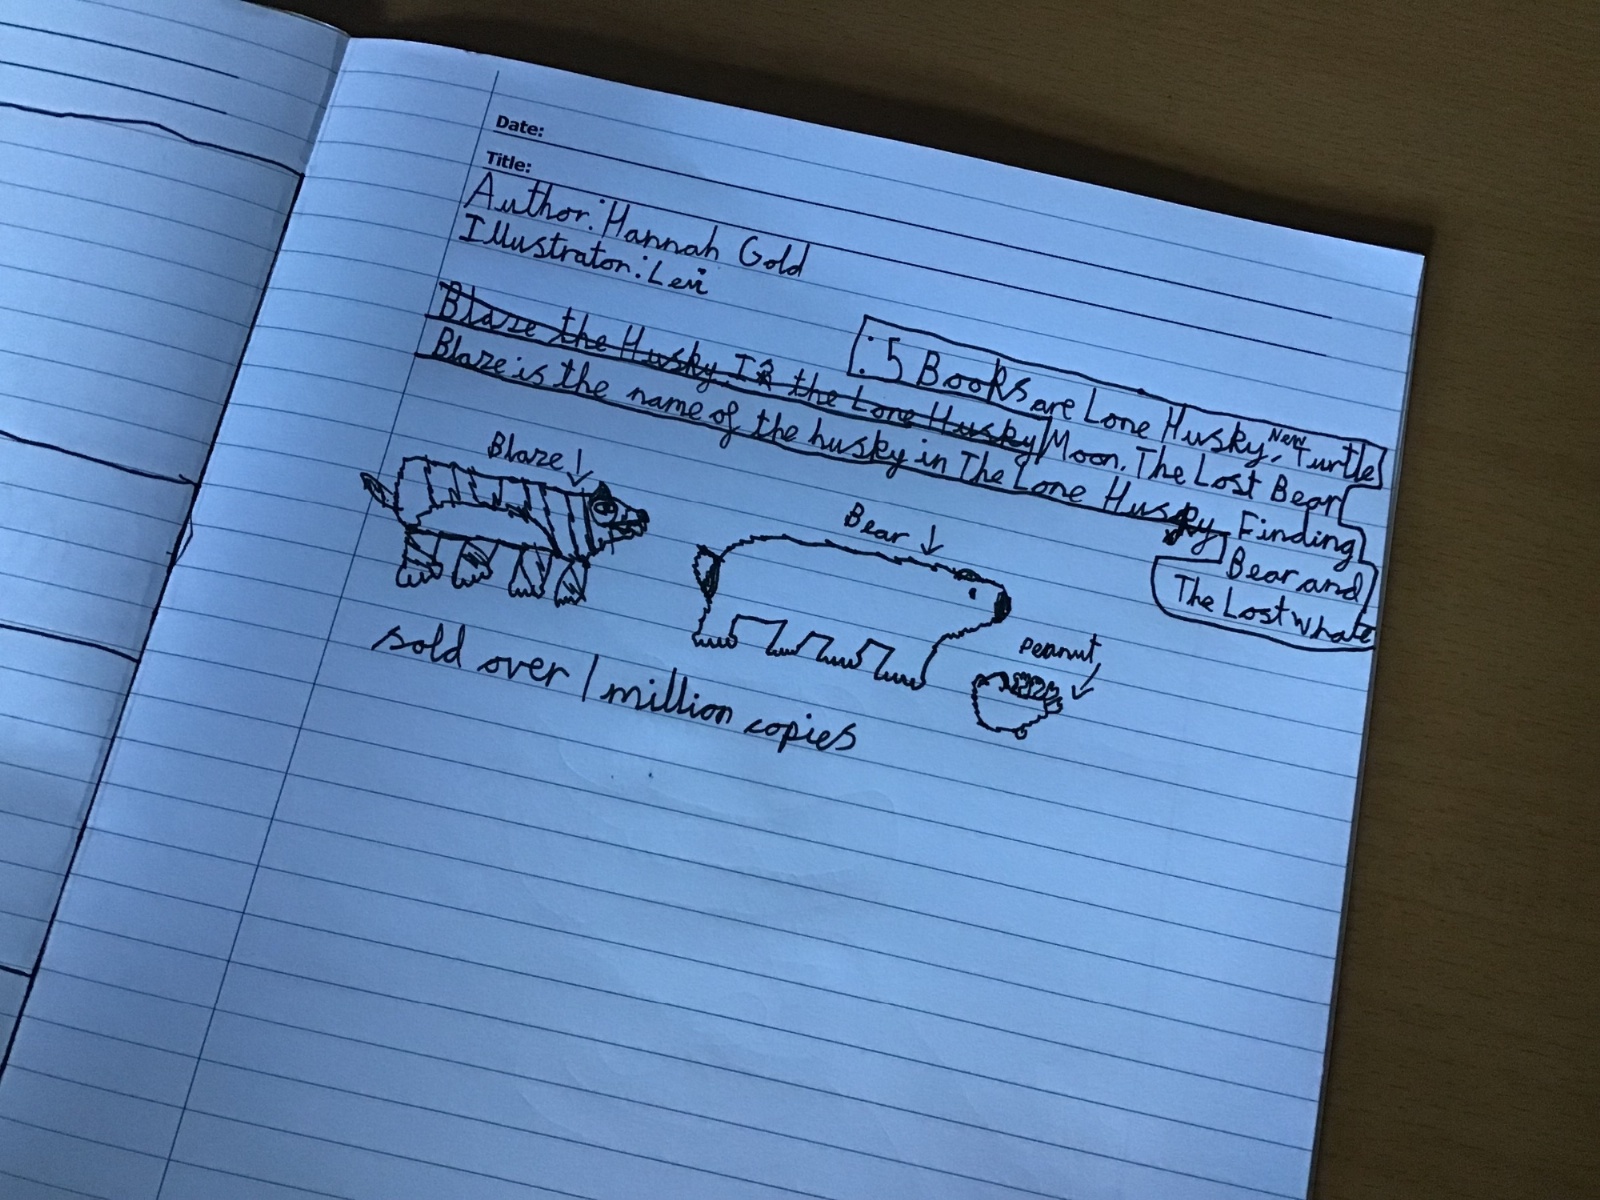 Date:
Title:
Author: Hannah Gold
Illustrator: Levi
Blaze the Husky. Is the Lone Husky
Blaze is the name of the husky in The Lone Husky
: 5 Books are Lone Husky, New Turtle
Moon. The Lost Bear
Finding
Bear and
The Lost whale
Blaze
Bear
peanut
sold over 1 million copies